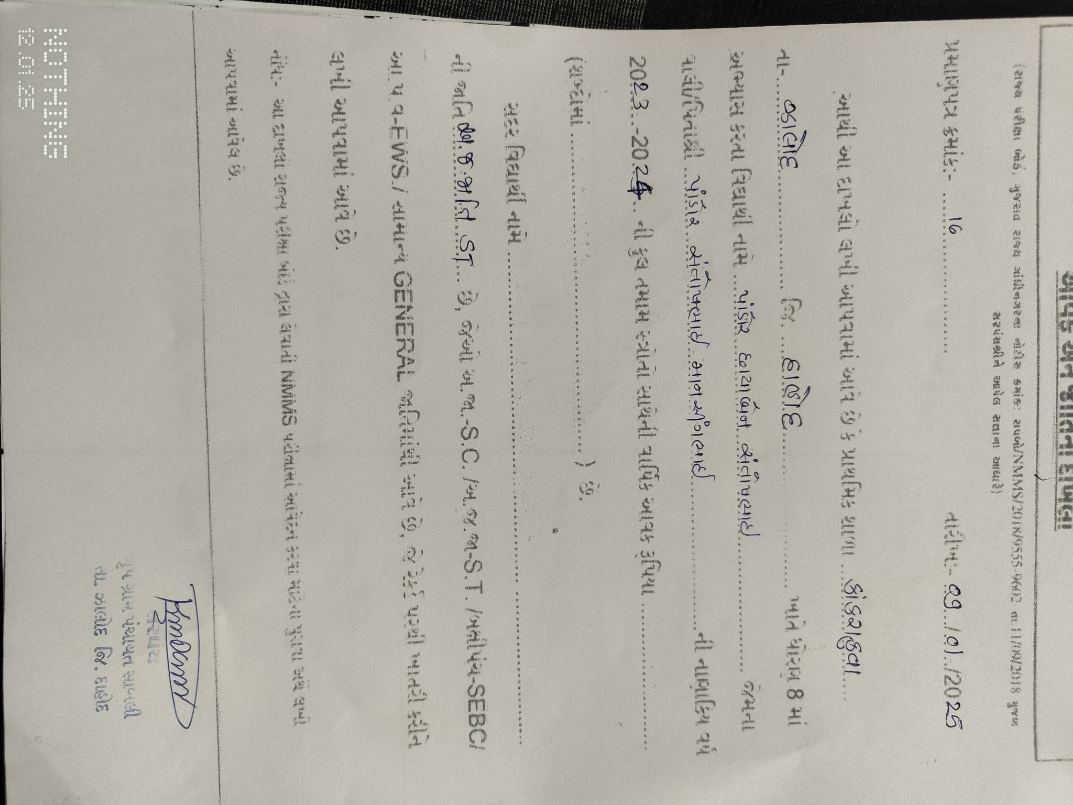 આવક અને જાતિના દાખલા
(રાજ્ય પરીક્ષા બોર્ડ, ગુજરાત રાજ્ય ગાંધીનગરના નોટીસ ક્રમાંક: રાપબો/NMMS/2018/9555-9602 તા.11/09/2018 મુજબ
સરપંચશ્રીને આપેલ સત્તાના આધારે)
પ્રમાણપત્ર ક્રમાંક:- ......16.................... તારીખ:- 09../01../2025
આથી આ દાખલો લખી આપવામાં આવે છે કે પ્રાથમિક શાળા ...
તા-...ઝાલોદ................ જિ. ...દાહોદ..................... ખાતે ધોરણ 8 માં
અભ્યાસ કરતા વિદ્યાર્થી નામે ... છાયાબેન ................ જેમના
વાલી/પિતાશ્રી ................ ની નાણાકિય વર્ષ
2023..-2024.. ની કુલ તમામ સ્ત્રોતો સાથેની વાર્ષિક આવક રૂપિયા .....................
(શબ્દોમાં .............................................. ) છે.
સદર વિદ્યાર્થી નામે .....................................................................
ની જાતિ અ.જ.જાતિ ST... છે, જેઓ અ.જા.-S.C. /અ.જ.જા-S.T. /બક્ષીપંચ-SEBC/
આ.પ.વ-EWS./ સામાન્ય GENERAL જાતિમાંથી આવે છે, જે રેકર્ડ પરથી ખાતરી કરીને
લખી આપવામાં આવે છે.
નોંધ:- આ દાખલો રાજ્ય પરીક્ષા બોર્ડ દ્વારા લેવાતી NMMS પરીક્ષામાં આવેદન કરવા માટેના પુરાવા અર્થે લખી
આપવામાં આવેલ છે.
ગ્રામ પંચાયત
તા. ઝાલોદ જિ. દાહોદ
NOTHING
12.01.25